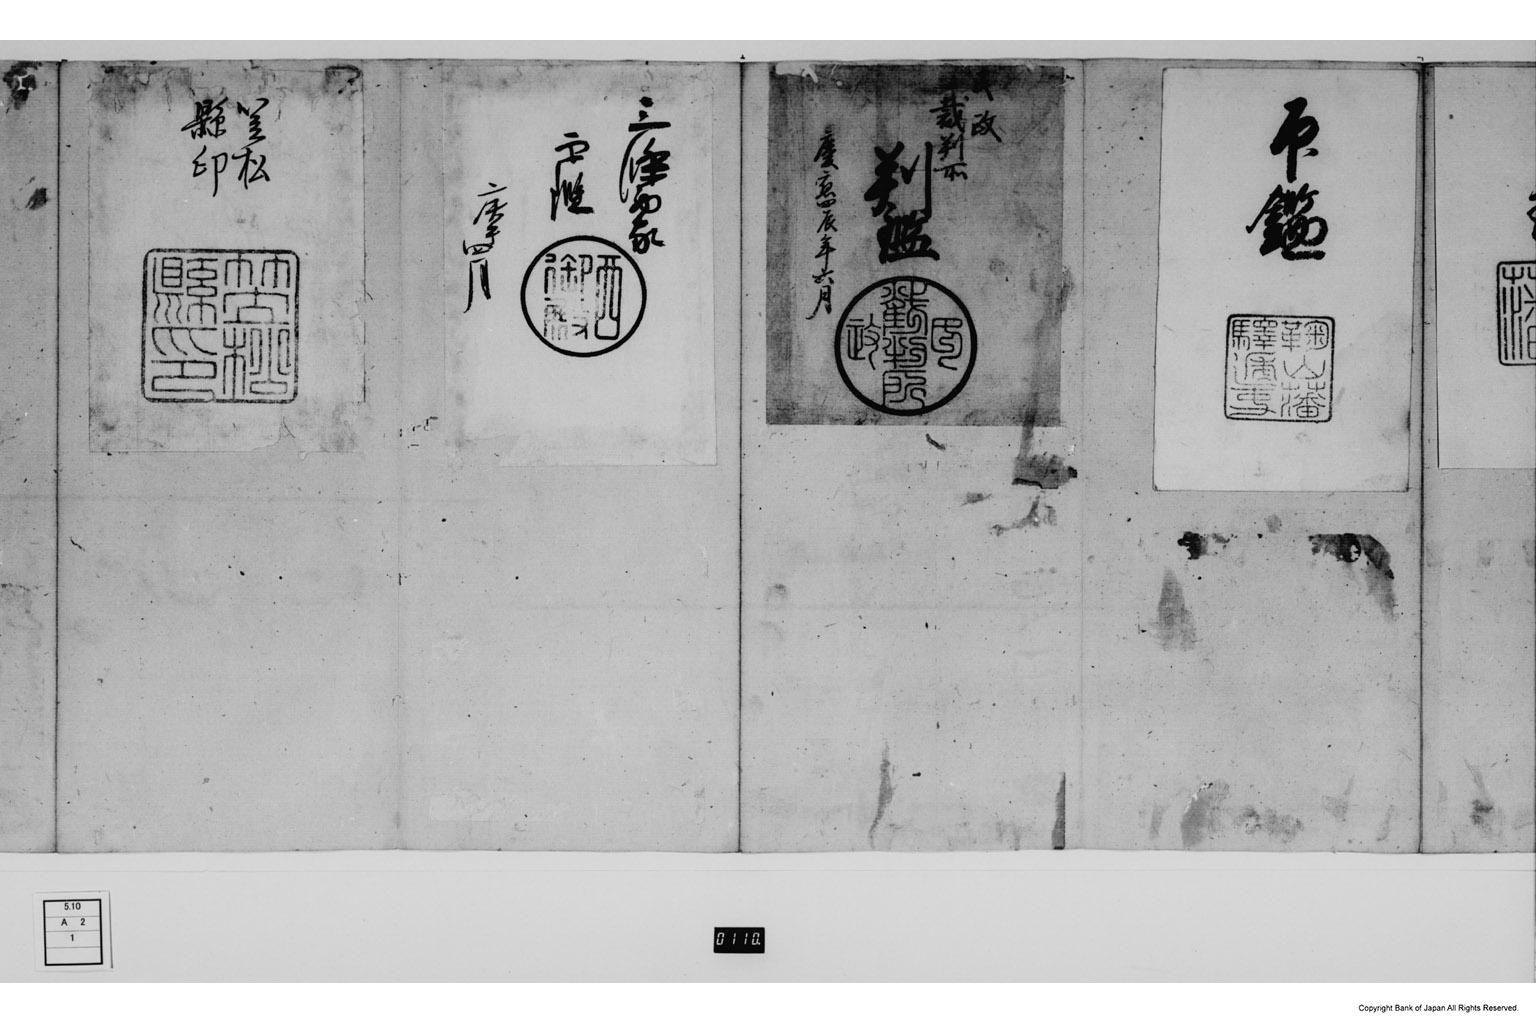 印
鑑
鞠山藩
驛逓事
政
裁判所
判鑑
慶應四辰年六月
民政
裁判所
三條西家
印鑑
庚午四月
西
御殿
笠松
縣印
笠松
縣印
5.10
A 2
1
0110.
Copyright Bank of Japan All Rights Reserved.